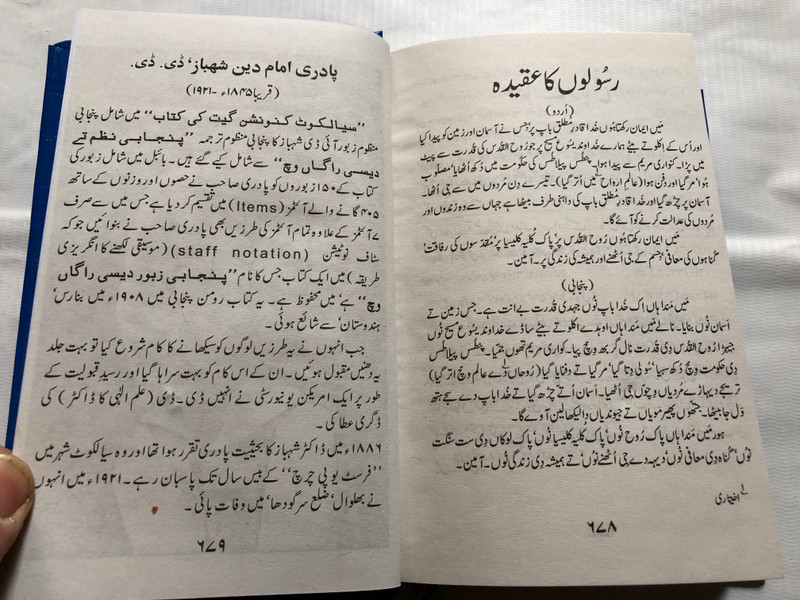 رسُولوں کا عقیدہ
(اُردو)
مَیں ایمان رکھتا ہُوں خُدا قادرِ مُطلق باپ پر جِس نے آسمان اور زمین کو پیدا کیا
اور اُس کے اکلوتے بیٹے ہمارے خُداوند یسُوع مسیح پر جو رُوحُ القُدس کی قُدرت سے پیٹ
میں پڑا۔ کنواری مریم سے پیدا ہوا۔ پنطِس پیلاطُس کی حکُومت میں دُکھ اُٹھایا، مصلُوب
ہُوا، مر گیا اور دفن ہوا (عالمِ ارواح میں اُتر گیا)۔ تیسرے دِن مُردوں میں سے جی اُٹھا۔
آسمان پر چڑھ گیا اور خُدا قادرِ مُطلق باپ کی داہنی طرف بیٹھا ہے جہاں سے وہ زندوں اور
مُردوں کی عدالت کرنے کو آئے گا۔
مَیں ایمان رکھتا ہُوں رُوحُ القُدس پر، پاک کلیسیا پر، مُقدّسوں کی رفاقت،
گُناہوں کی معافی، جسم کے جی اُٹھنے اور ہمیشہ کی زندگی پر۔ آمین۔
(پنجابی)
مَیں مَندا ہاں اِک خُدا باپ نُوں جہدی قُدرت بے انت ہے۔ جِس زمین تے
اَسمان نُوں بنایا۔ نالے مَیں مَندا ہاں اوہدے اکلوتے بیٹے ساڈے خُداوند یسُوع مسیح نُوں
جیہڑا رُوحُ القُدس دِی قُدرت نال گربھ وِچ پیا۔ کواری مریم تھوں جمّیا۔ پنطِس پیلاطُس
دِی حکومت وِچ دُکھ سہیا، سُولی دِتا گیا، مر گیا تے دفنایا گیا (رُوحاں دے عالم وِچ اُتر گیا)
تریجے دیہاڑے مُردیاں وِچوں جی اُٹھیا۔ اَسمان اُتے چڑھ گیا تے خُدا باپ دے سجے ہتھ
وَل جا بیٹھا۔ جتھوں پھیر مویاں تے جیوندیاں دا لیکھا لین آوے گا۔
ہور مَیں مَندا ہاں پاک رُوح نُوں، پاک کلیسیا نُوں، پاک لوکاں دِی ست سنگت
نُوں، گناہ دِی معافی نُوں، دیہہ دے جی اُٹھنے نُوں، تے ہمیشہ دِی زندگی نُوں۔ آمین۔
۶۷۸
پادری امام دین شہباز، ڈی۔ ڈی۔
(قریبا ۱۸۴۵ء - ۱۹۲۱)
"سیالکوٹ کنونشن گیت کی کتاب" میں شامل پنجابی
منظوم زبور آئی ڈی شہباز کا پنجابی منظوم ترجمہ "پنجابی نظم تے
دیسی راگاں وچ" سے شامل کیے گئے ہیں۔ بائبل میں شامل زبور کی
کتاب کے ۱۵۰ زبوروں کو پادری صاحب نے حصوں اور وزنوں کے ساتھ
۴۰۵ گانے والے آئٹمز (Items) میں تقسیم کر دیا ہے جس میں سے صرف
۷ آئٹمز کے علاوہ تمام آئٹمز کی طرزیں بھی پادری صاحب نے بنوائیں جو کہ
سٹاف نوٹیشن (staff notation) (موسیقی لکھنے کا انگریزی
طریقہ) میں ایک کتاب جس کا نام "پنجابی زبور دیسی راگاں
وچ" ہے، میں محفوظ ہے۔ یہ کتاب رومن پنجابی میں ۱۹۰۸ء میں بنارس،
ہندوستان، سے شائع ہوئی۔
جب انہوں نے یہ طرزیں لوگوں کو سکھانے کا کام شروع کیا تو بہت جلد
یہ دھنیں مقبول ہوئیں۔ ان کے اس کام کو بہت سراہا گیا اور رسیدِ قبولیت کے
طور پر ایک امریکن یونیورسٹی نے انہیں ڈی۔ ڈی (علمِ الٰہی کا ڈاکٹر) کی
ڈگری عطا کی۔
۱۸۸۶ء میں ڈاکٹر شہباز کا بحیثیت پادری تقرر ہوا تھا اور وہ سیالکوٹ شہر میں
"فرسٹ یو پی چرچ" کے بیس سال تک پاسبان رہے۔ ۱۹۲۱ء میں انہوں
نے بھلوال، ضلع سرگودھا، میں وفات پائی۔
۶۷۹